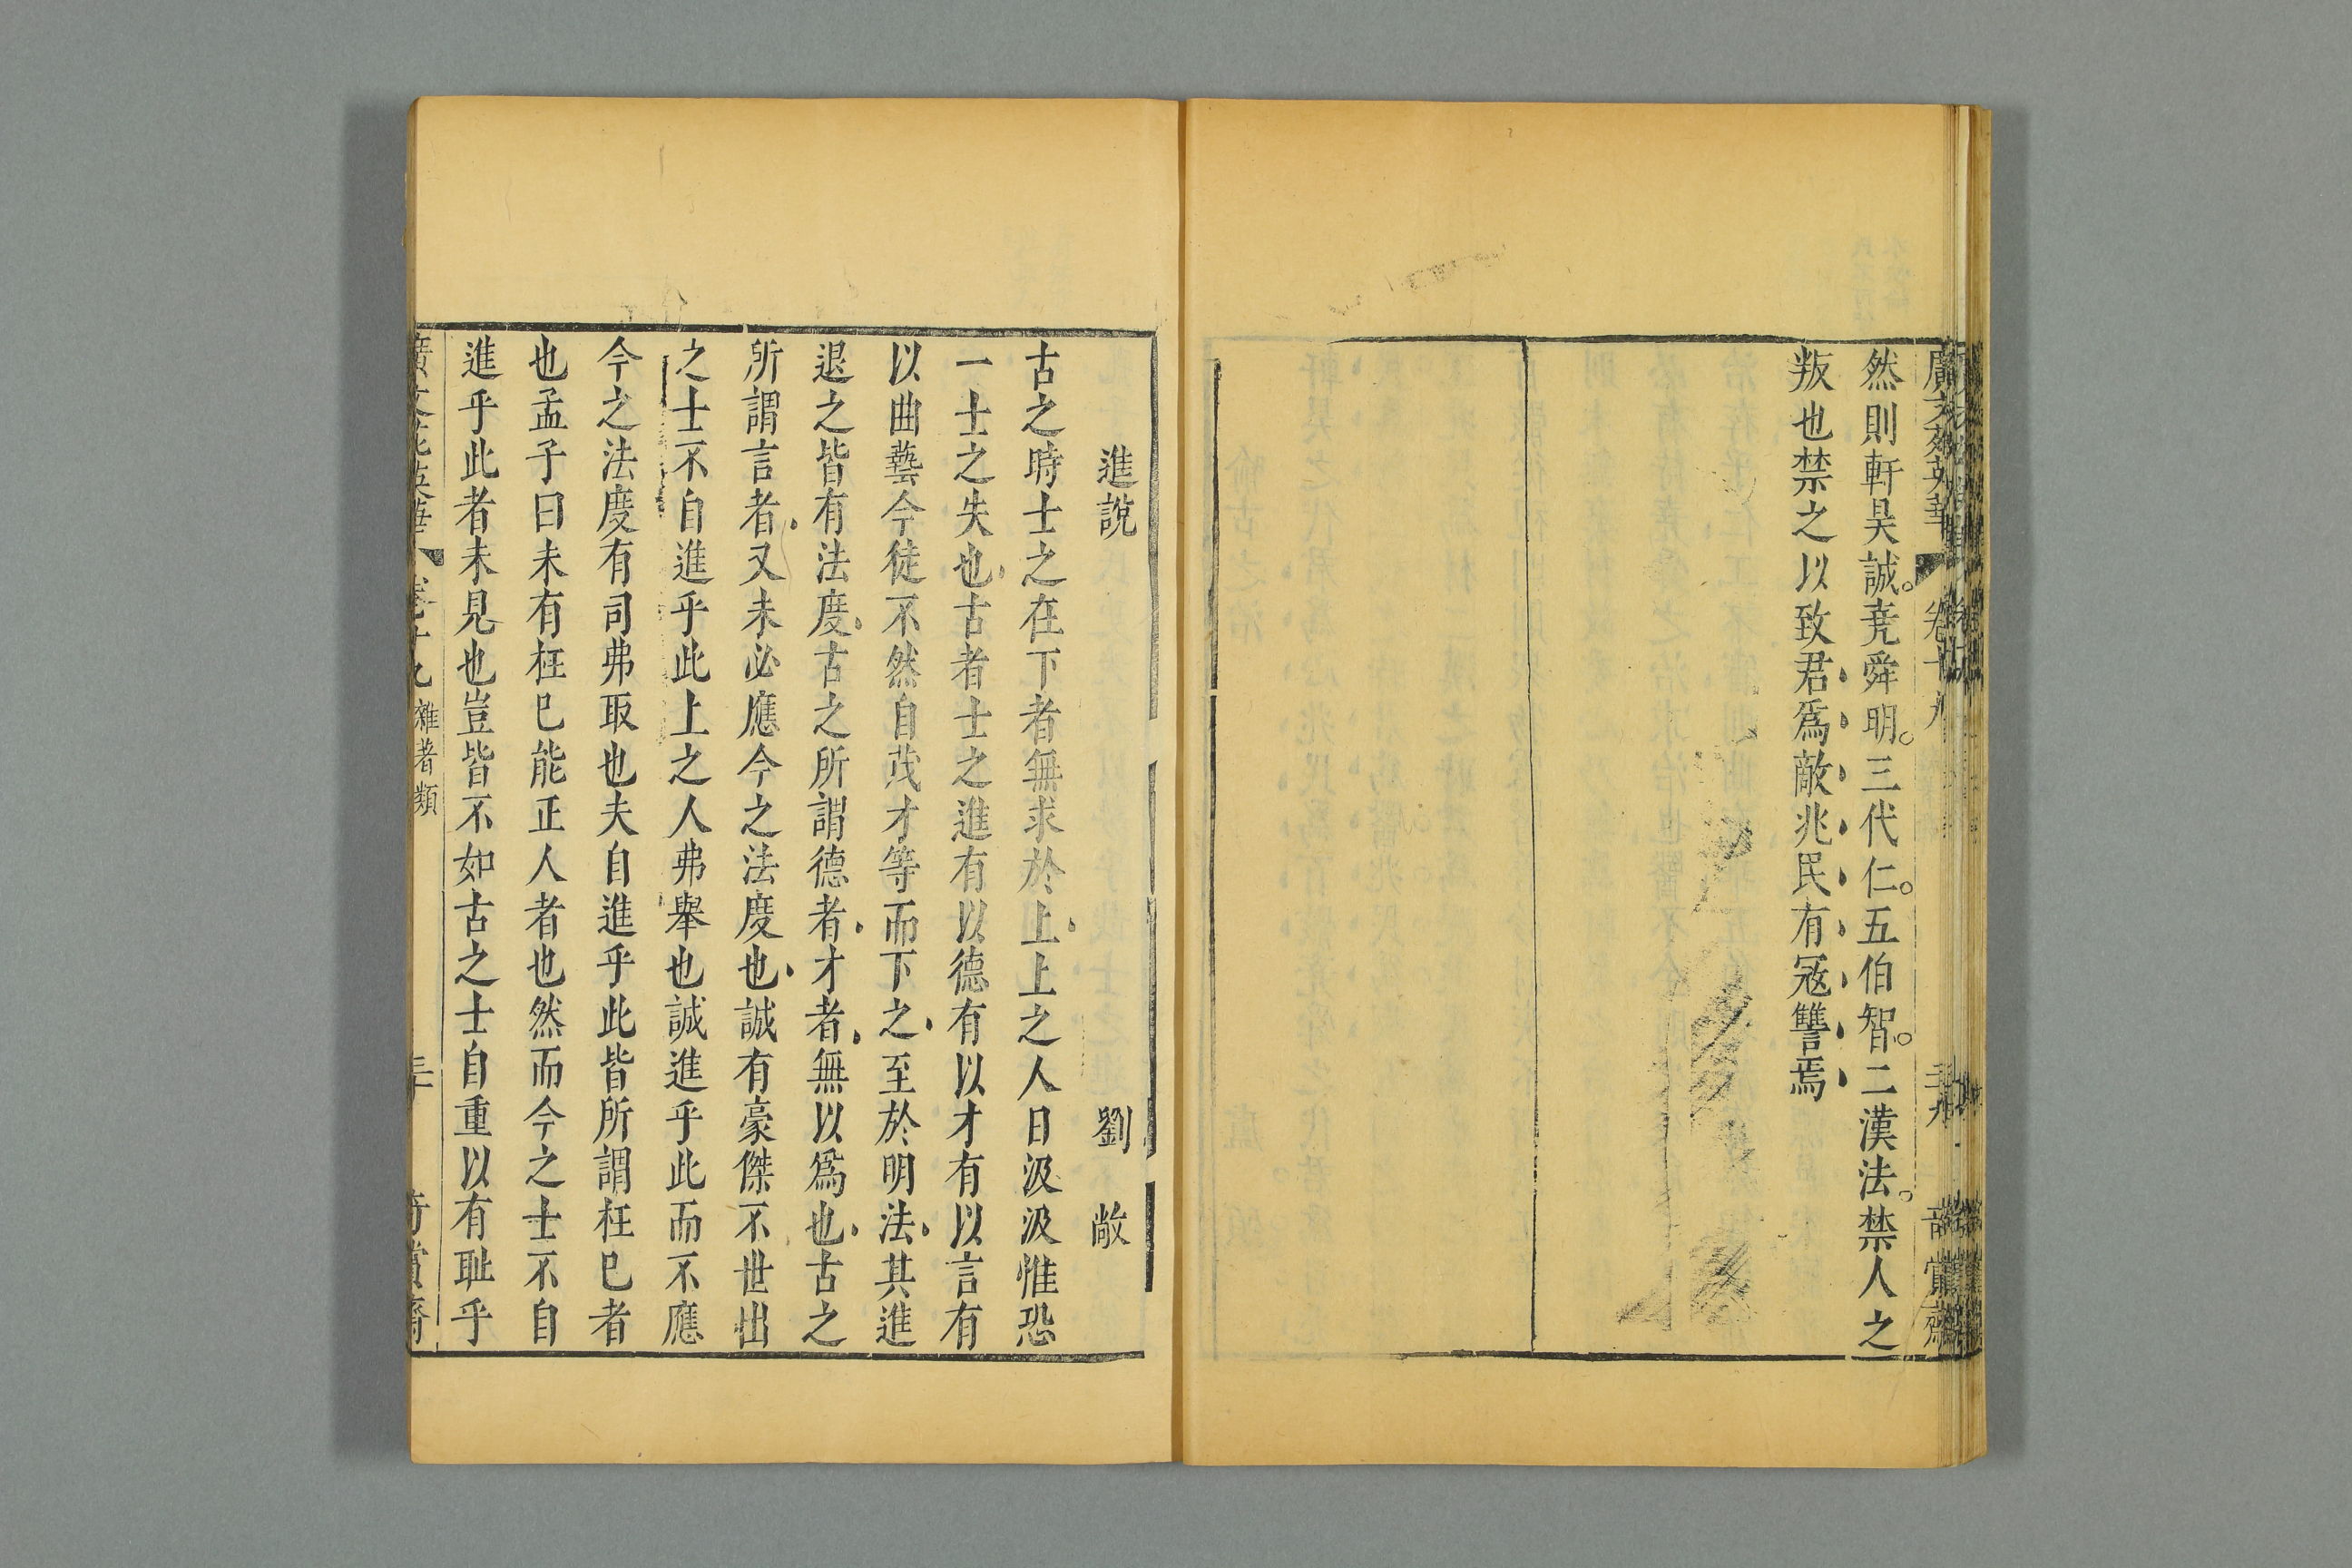 廣文苑英華 卷十九 二十九 奇賞齋
然則軒昊誠。堯舜明。三代仁。五伯智。二漢法。禁人之
叛也禁之以致君爲敵兆民有冦讐焉
進說 劉敞
古之時士之在下者無求於上上之人日汲汲惟恐
一士之失也古者士之進有以德有以才有以言有
以曲藝今徒不然自茂才等而下之至於明法其進
退之皆有法度古之所謂德者才者無以爲也古之
所謂言者又未必應今之法度也誠有豪傑不世出
之士不自進乎此上之人弗舉也誠進乎此而不應
今之法度有司弗取也夫自進乎此皆所謂枉巳者
也孟子曰未有枉巳能正人者也然而今之士不自
進乎此者未見也豈皆不如古之士自重以有耻乎
廣文苑英華 卷十九 雜著類 三十 奇賞齋